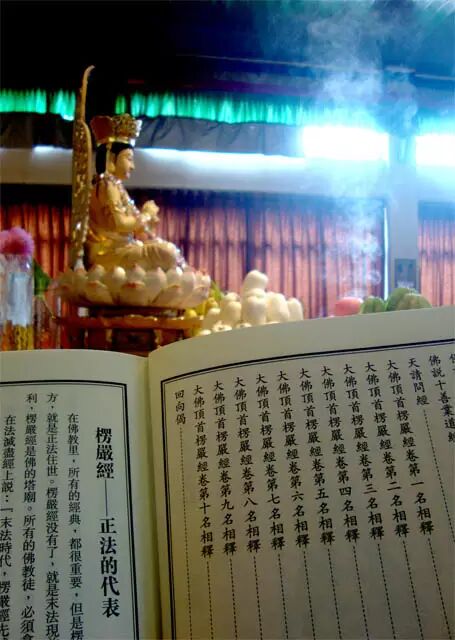 佛說十善業道經
天請問經
大佛頂首楞嚴經卷第一名相釋
大佛頂首楞嚴經卷第二名相釋
大佛頂首楞嚴經卷第三名相釋
大佛頂首楞嚴經卷第四名相釋
大佛頂首楞嚴經卷第五名相釋
大佛頂首楞嚴經卷第六名相釋
大佛頂首楞嚴經卷第七名相釋
大佛頂首楞嚴經卷第八名相釋
大佛頂首楞嚴經卷第九名相釋
大佛頂首楞嚴經卷第十名相釋
回向偈
楞嚴經——正法的代表
在佛教里，所有的經典，都很重要，但是楞
方，就是正法住世。楞嚴經沒有了，就是末法現
利，楞嚴經是佛的塔廟。所有的佛教徒，必須
在法滅盡經上說：「末法時代，楞嚴經先